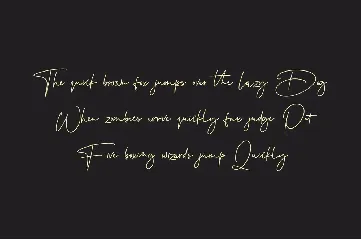 The quick brown fox jumps over the Lazy Dog
When zombies arrive quickly fax judge Pat
Five boxing wizards jump Quickly